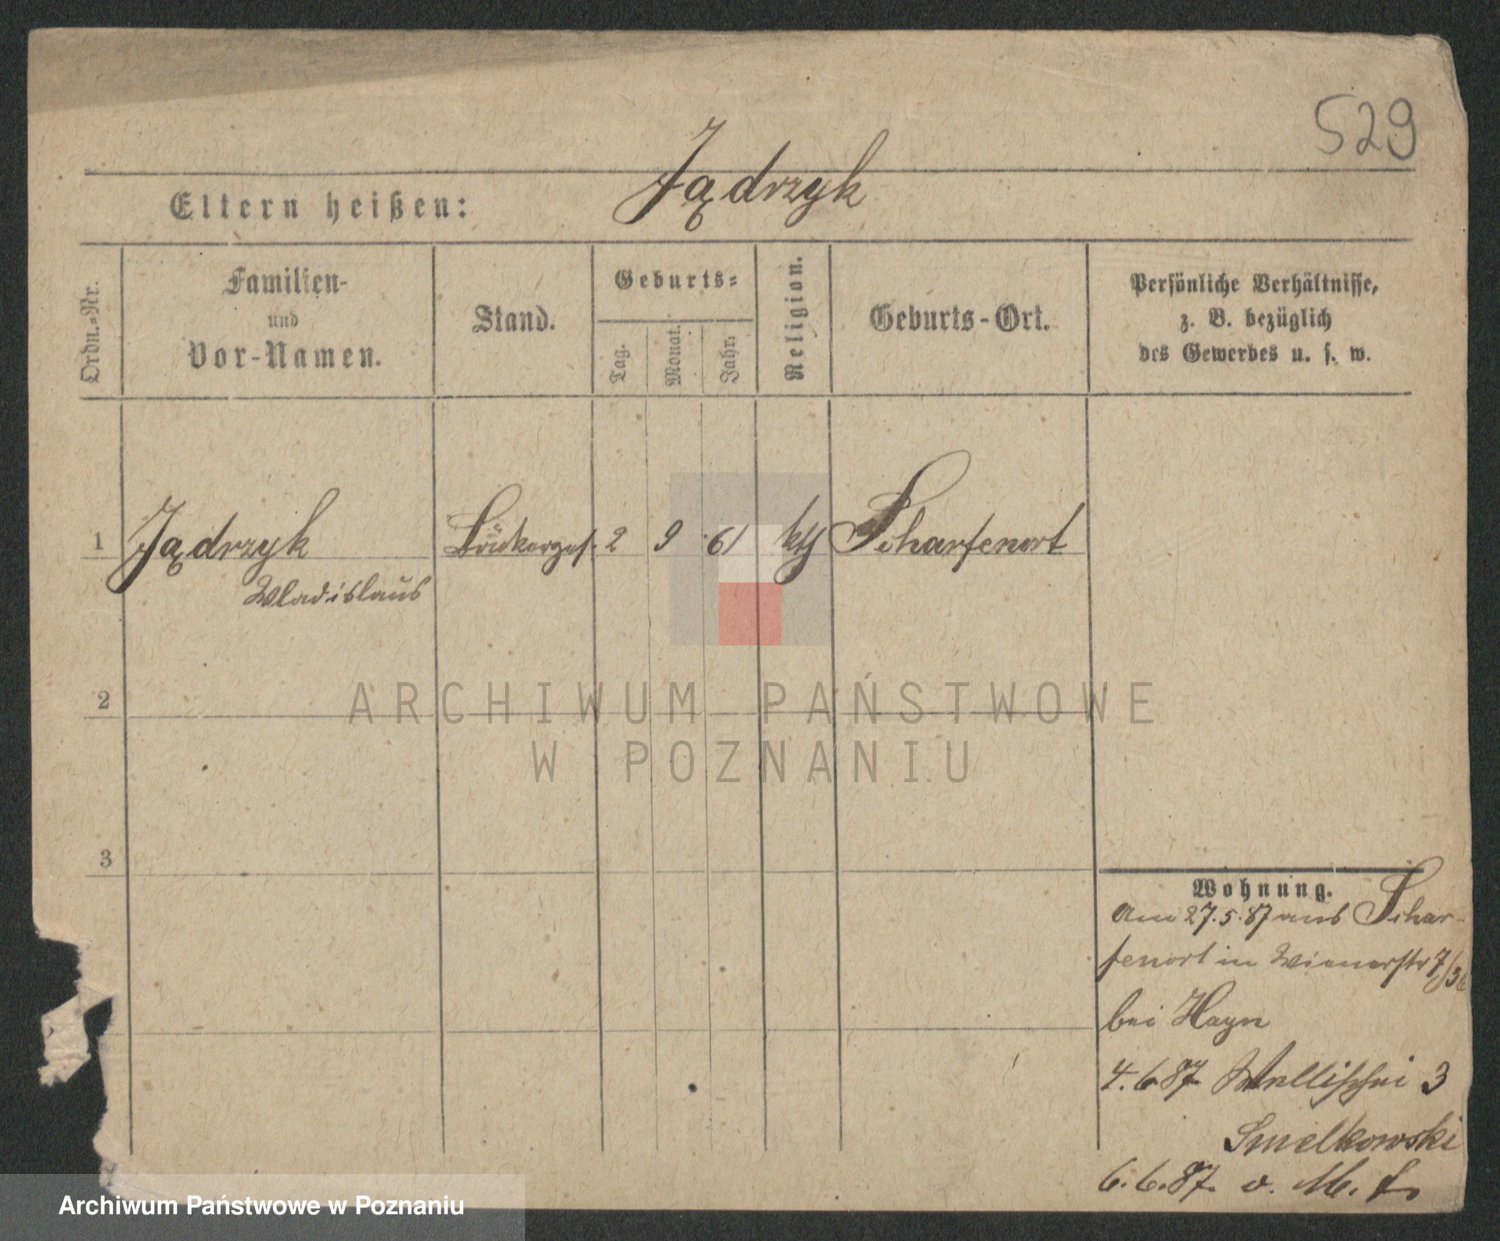 529
Jądrzyk
Eltern heißen:
Ordn.=Nr.
Familien-
und
Vor-Namen.
Stand.
Geburts=
Tag.
Monat.
Jahr.
Religion.
Geburts-Ort.
Persönliche Verhältnisse,
z. B. bezüglich
des Gewerbes u. s. w.
1 Jądrzyk 2 9 61 kth Scharfenort
Wladislaus
2
3
ARCHIWUM PAŃSTWOWE
W POZNANIU
Wohnung.
Am 27.5.87 aus Schar-
fenort in Wienerstr 7/36
bei Hayn
4.6.87 Wallischei 3
Smelkowski
6.6.87. v. M.
Archiwum Państwowe w Poznaniu